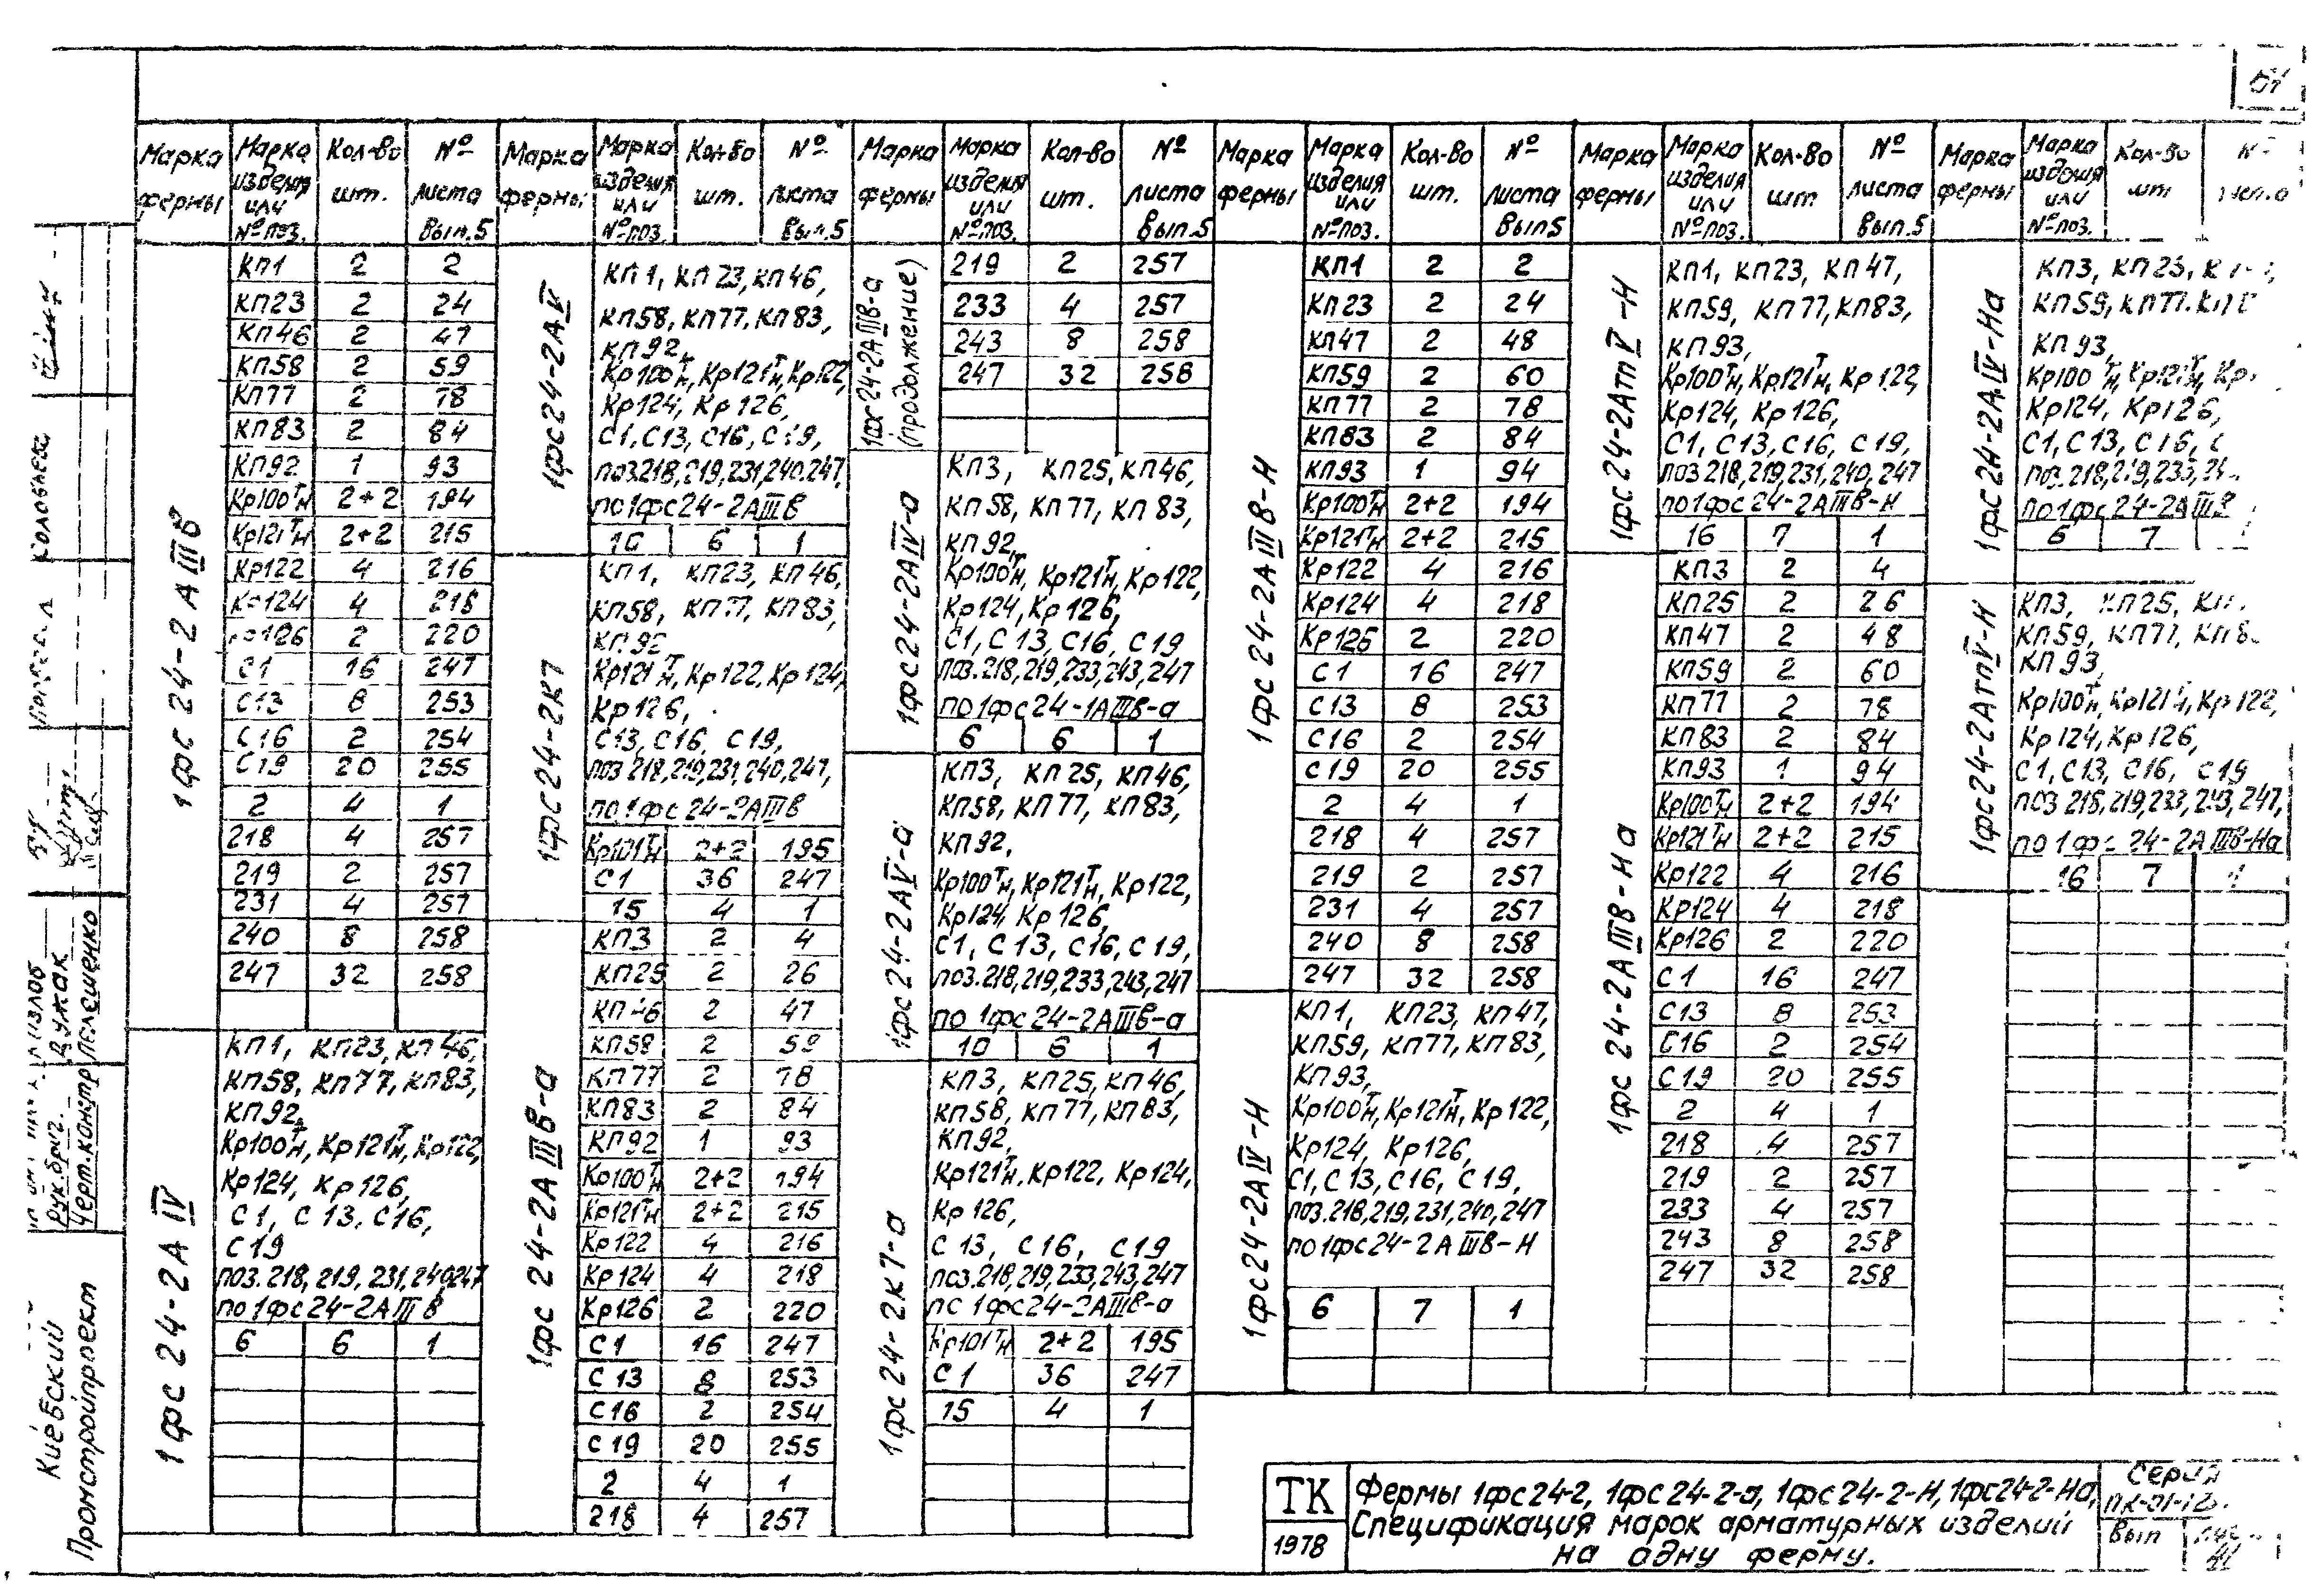 Марка фермы | Марка изделия или № поз. | Кол-во шт. | № листа Вып.5
1фс 24-2АIIIв
КП1 2 2
КП23 2 24
КП46 2 47
КП58 2 59
КП77 2 78
КП83 2 84
КП92 1 93
Кр100Тн 2+2 194
Кр121Тн 2+2 215
Кр122 4 216
Кр124 4 218
Кр126 2 220
С1 16 247
С13 8 253
С16 2 254
С19 20 255
2 4 1
218 4 257
219 2 257
231 4 257
240 8 258
247 32 258
1фс 24-2АIV
КП1, КП23, КП46,
КП58, КП77, КП83,
КП92,
Кр100Тн, Кр121Тн, Кр122,
Кр124, Кр126,
С1, С13, С16,
С19
поз.218, 219, 231, 240, 247
по 1фс24-2АIIIв
6 6 1
Марка фермы | Марка изделия или № поз. | Кол-во шт. | № листа Вып.5
1фс24-2АV
КП1, КП23, КП46,
КП58, КП77, КП83,
КП92,
Кр100Тн, Кр121Тн, Кр122,
Кр124, Кр126,
С1, С13, С16, С19,
поз.218,219,231,240,247,
по 1фс24-2АIIIв
10 6 1
1фс24-2К7
КП1, КП23, КП46,
КП58, КП77, КП83,
КП92
Кр121Тн, Кр122, Кр124,
Кр126,
С13, С16, С19,
поз 218,219,231,240,247,
по 1фс24-2АIIIв
Кр101Тн 2+2 195
С1 36 247
15 4 1
1фс 24-2АIIIв-а
КП3 2 4
КП25 2 26
КП46 2 47
КП58 2 59
КП77 2 78
КП83 2 84
КП92 1 93
Кр100Тн 2+2 194
Кр121Тн 2+2 215
Кр122 4 216
Кр124 4 218
Кр126 2 220
С1 16 247
С13 8 253
С16 2 254
С19 20 255
2 4 1
218 4 257
Марка фермы | Марка изделия или № поз. | Кол-во шт. | № листа Вып.5
1фс24-2АIIIв-а (продолжение)
219 2 257
233 4 257
243 8 258
247 32 258
1фс24-2АIV-а
КП3, КП25, КП46,
КП58, КП77, КП83,
КП92,
Кр100Тн, Кр121Тн, Кр122,
Кр124, Кр126,
С1, С13, С16, С19
поз.218,219,233,243,247
по 1фс24-1АIIIв-а
6 6 1
1фс24-2АV-а
КП3, КП25, КП46,
КП58, КП77, КП83,
КП92,
Кр100Тн, Кр121Тн, Кр122,
Кр124, Кр126,
С1, С13, С16, С19,
поз.218,219,233,243,247
по 1фс24-2АIIIв-а
10 6 1
1фс 24-2К7-а
КП3, КП25, КП46,
КП58, КП77, КП83,
КП92,
Кр121Тн, Кр122, Кр124,
Кр126,
С13, С16, С19
поз.218,219,233,243,247
по 1фс24-2АIIIв-а
Кр101Тн 2+2 195
С1 36 247
15 4 1
Марка фермы | Марка изделия или № поз. | Кол-во шт. | № листа Вып5
1фс 24-2АIIIв-Н
КП1 2 2
КП23 2 24
КП47 2 48
КП59 2 60
КП77 2 78
КП83 2 84
КП93 1 94
Кр100Тн 2+2 194
Кр121Тн 2+2 215
Кр122 4 216
Кр124 4 218
Кр126 2 220
С1 16 247
С13 8 253
С16 2 254
С19 20 255
2 4 1
218 4 257
219 2 257
231 4 257
240 8 258
247 32 258
1фс24-2АIV-Н
КП1, КП23, КП47,
КП59, КП77, КП83,
КП93,
Кр100Тн, Кр121Тн, Кр122,
Кр124, Кр126,
С1, С13, С16, С19,
поз.218,219,231,240,247
по 1фс24-2АIIIв-Н
6 7 1
Марка фермы | Марка изделия или № поз. | Кол-во шт | № листа Вып.5
1фс24-2АтV-Н
КП1, КП23, КП47,
КП59, КП77, КП83,
КП93,
Кр100Тн, Кр121Тн, Кр122,
Кр124, Кр126,
С1, С13, С16, С19,
поз.218,219,231,240,247
по 1фс24-2АIIIв-Н
16 7 1
1фс 24-2АIIIв-На
КП3 2 4
КП25 2 26
КП47 2 48
КП59 2 60
КП77 2 78
КП83 2 84
КП93 1 94
Кр100Тн 2+2 194
Кр121Тн 2+2 215
Кр122 4 216
Кр124 4 218
Кр126 2 220
С1 16 247
С13 8 253
С16 2 254
С19 20 255
2 4 1
218 4 257
219 2 257
233 4 257
243 8 258
247 32 258
Марка фермы | Марка изделия или № поз. | Кол-во шт | №
1фс24-2АIV-На
КП3, КП25,
КП59, КП77,
КП93,
Кр100Тн, Кр121Тн,
Кр124, Кр126,
С1, С13, С16,
поз.218,219,233,
по 1фс24-2АIIIв
6 7
1фс24-2АтV-Н
КП3, КП25,
КП59, КП77,
КП93,
Кр100Тн, Кр121Тн, Кр122,
Кр124, Кр126,
С1, С13, С16, С19
поз 218,219,233,243,247,
по 1фс 24-2АIIIв-На
16 7 1
Киевский
Промстройпроект
Рук.бриг. Вужак
Черт.констр Лелещенко
ТК
1978
Фермы 1фс24-2, 1фс24-2-а, 1фс24-2-Н, 1фс24-2-На,
Спецификация марок арматурных изделий
на одну ферму.
Серия
Вып